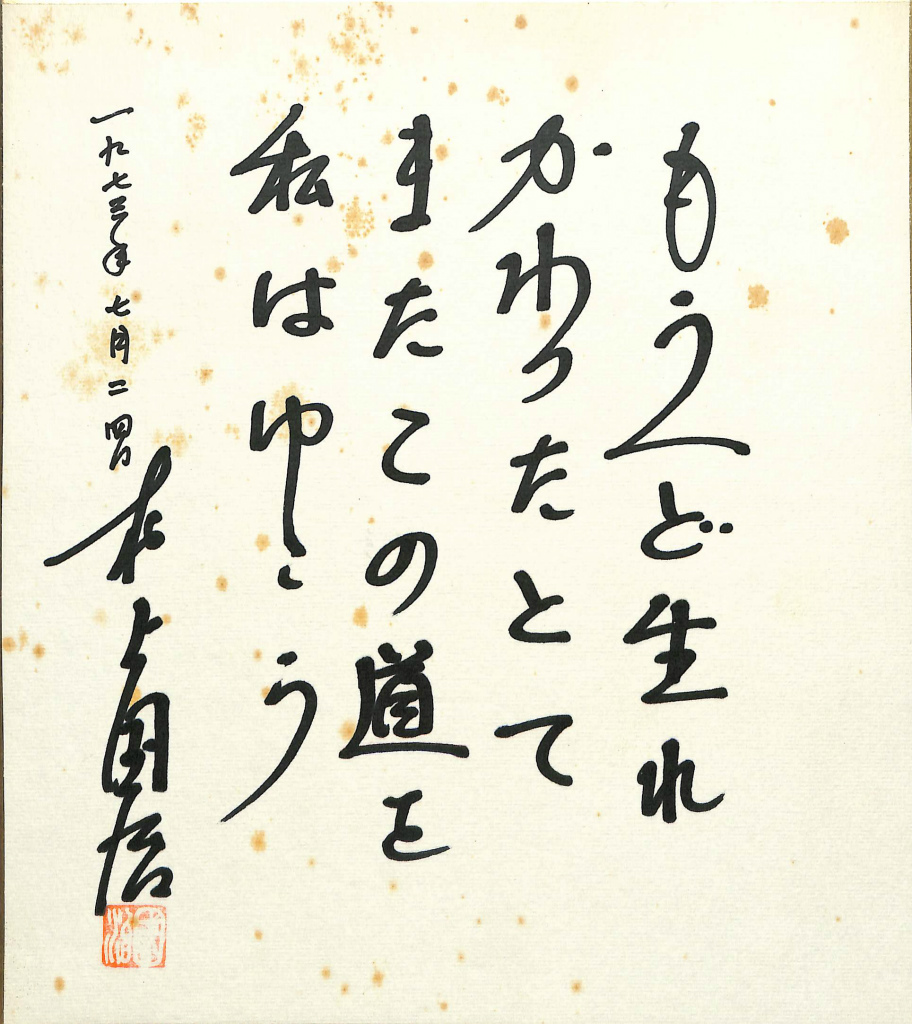 もう一ど生れ
かわったとて
またこの道を
私はゆこう
一九七三年七月二四日
村上国治
國治